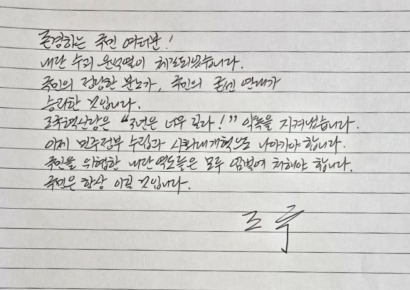 존경하는 국민 여러분!
내란 수괴 윤석열이 체포되었습니다.
국민의 정당한 분노가, 국민의 굳센 연대가
승리한 것입니다.
조국혁신당은 "3년은 너무 길다!" 약속을 지켜냈습니다.
이제 민주정부 수립과 사회대개혁으로 나아가야 합니다.
국민을 위협한 내란 일당들은 모두 엄벌에 처해야 합니다.
국민은 항상 이길 것입니다.
조국